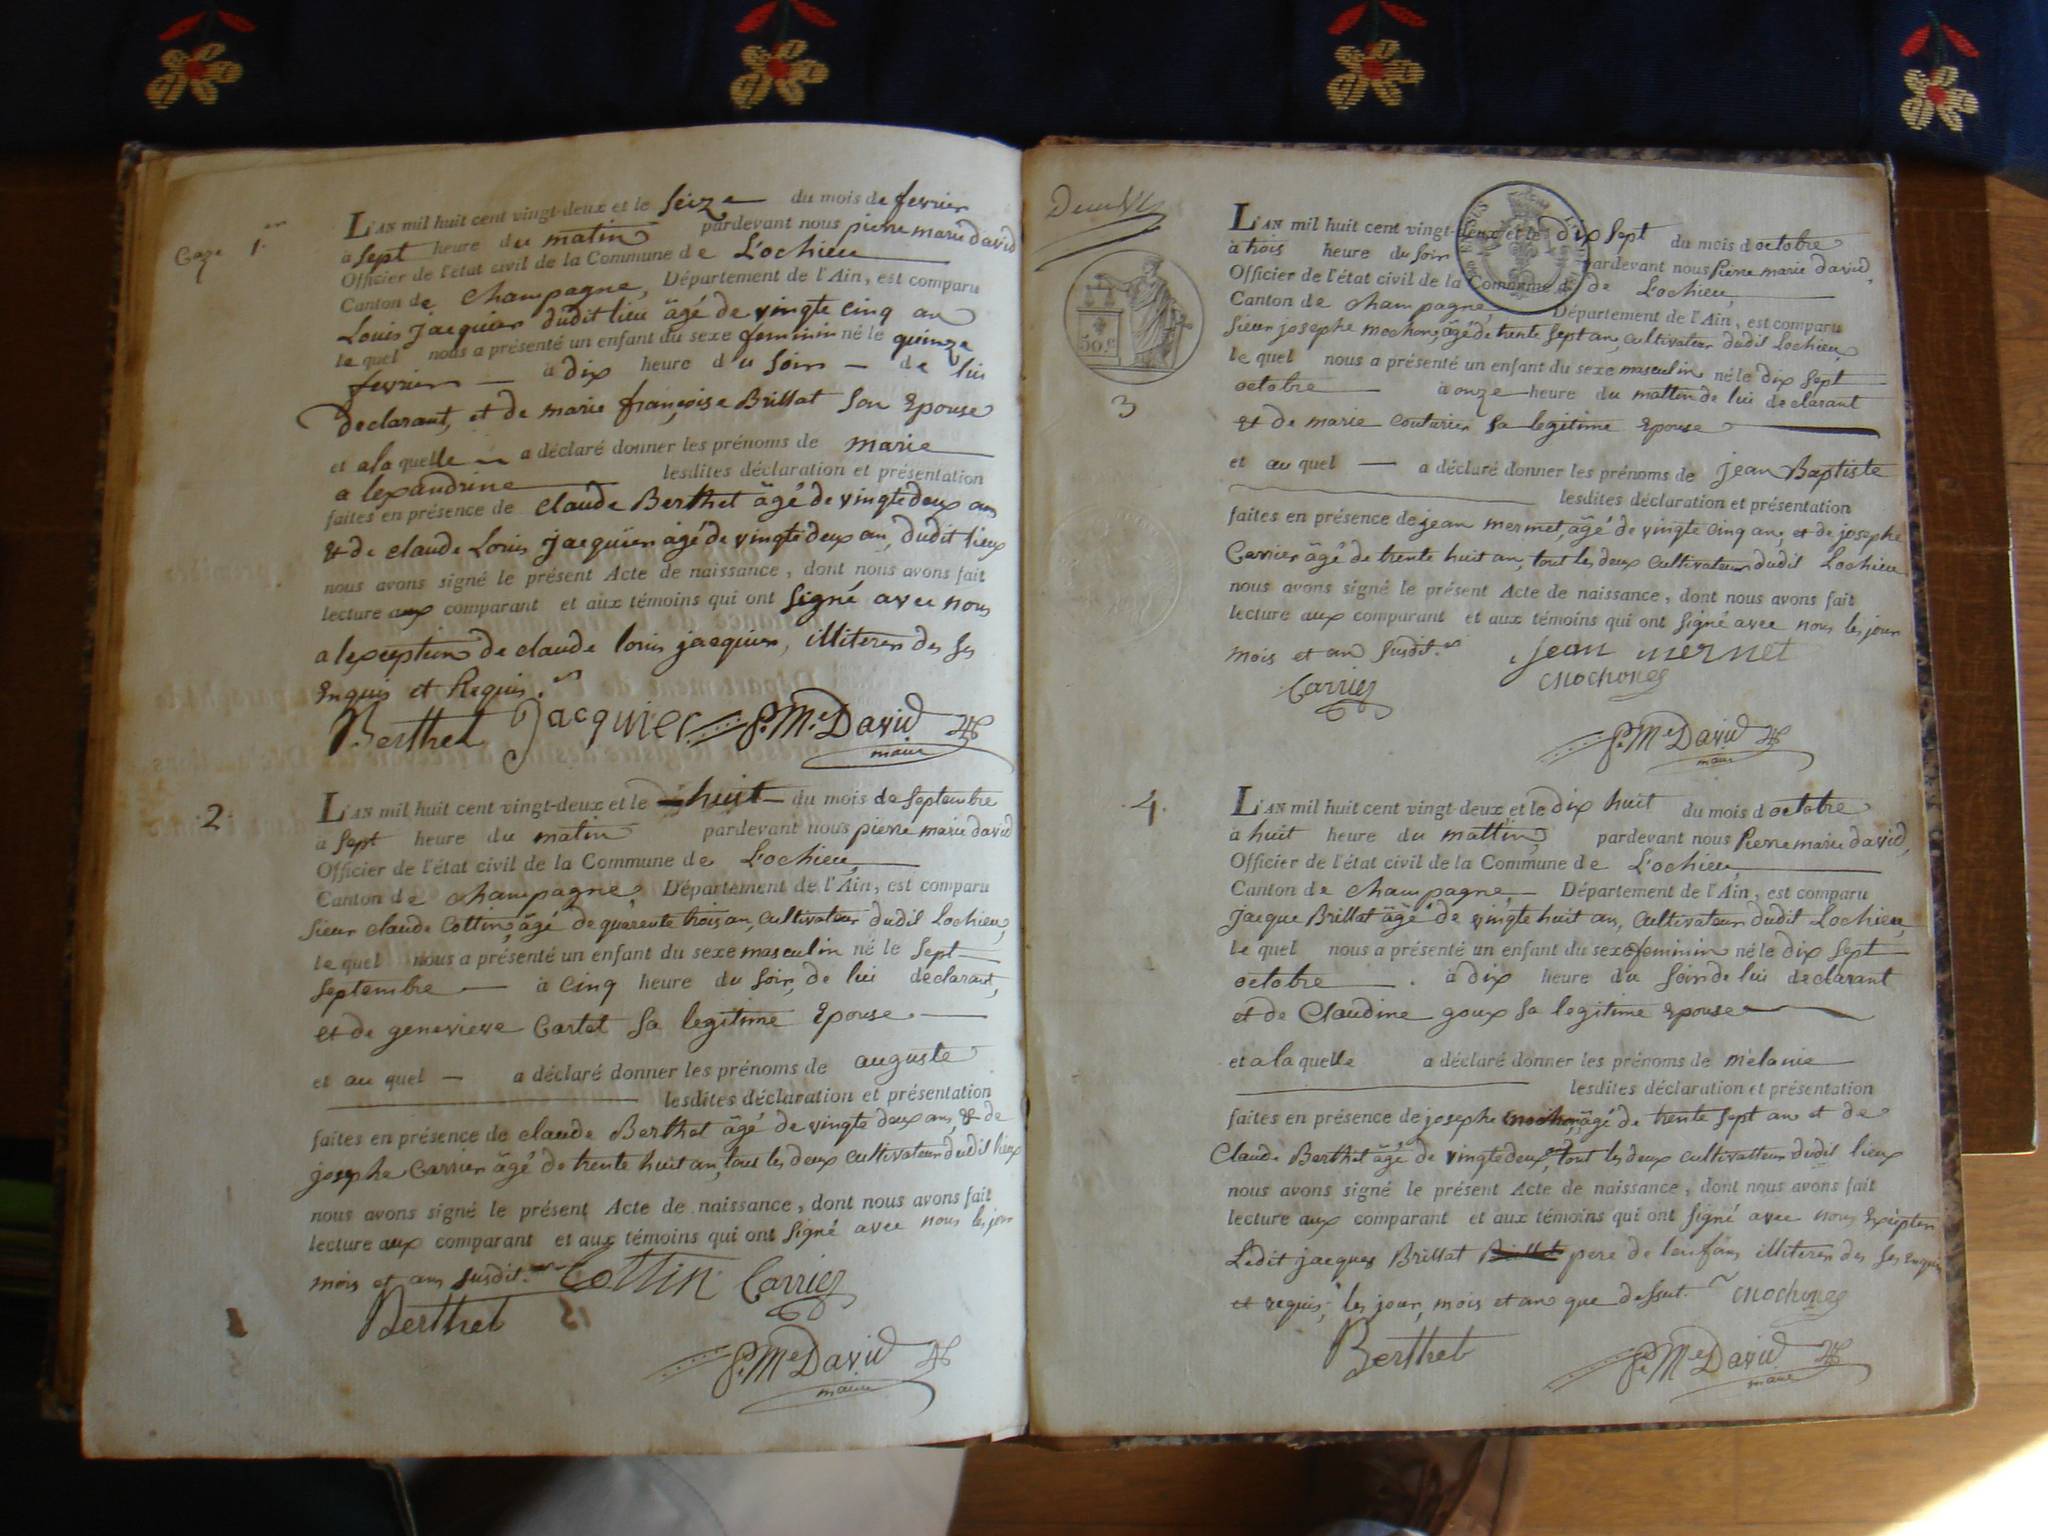 1.
L'AN mil huit cent vingt-deux et le seize du mois de fevrier
à sept heure du matin pardevant nous pierre marie david
Officier de l'état civil de la Commune de Lochieu
Canton de Champagne, Département de l'Ain, est comparu
Louis jacquier dudit lieu âgé de vingte cinq an
le quel nous a présenté un enfant du sexe feminin né le quinze
fevrier à dix heure du soir de lui
declarant, et de marie françoise Brillat son Epouse
et a la quelle a déclaré donner les prénoms de marie
alexandrine lesdites déclaration et présentation
faites en présence de claude Berthet âgé de vingte deux ans
et de claude Louis jacquier âgé de vingte deux an, dudit lieux
nous avons signé le présent Acte de naissance, dont nous avons fait
lecture aux comparant et aux témoins qui ont signé avec nous
a lexception de claude louis jacquier, illiteres de ses
Enquis et Requis.
Berthet Jacquier P. Me David
maire
2.
L'AN mil huit cent vingt-deux et le huit du mois de septembre
à sept heure du matin pardevant nous pierre marie david
Officier de l'état civil de la Commune de Lochieu,
Canton de champagne, Département de l'Ain, est comparu
sieur claude Cottin, âgé de quarente trois an, cultivateur dudit Lochieu,
le quel nous a présenté un enfant du sexe masculin né le sept
septembre à cinq heure du soir, de lui declarant,
et de genevieve Cartet sa legitime Epouse
et au quel a déclaré donner les prénoms de auguste
lesdites déclaration et présentation
faites en présence de claude Berthet âgé de vingte deux ans, & de
josephe Carrier âgé de trente huit an, tous les deux cultivateur dudit lieux
nous avons signé le présent Acte de naissance, dont nous avons fait
lecture aux comparant et aux témoins qui ont signé avec nous les jour
mois et an susdit. Cottin Carrier
Berthet
P. Me David
maire
50 c
3
L'AN mil huit cent vingt-deux et le dix sept du mois d octobre
à trois heure du soir pardevant nous Pierre marie david,
Officier de l'état civil de la Commune de Lochieu,
Canton de champagne, Département de l'Ain, est comparu
sieur josephe mochon, âgé de trente sept an, cultivateur dudit Lochieu,
le quel nous a présenté un enfant du sexe masculin né le dix sept
octobre à onze heure du mattin de lui declarant
et de marie couturier sa legitime Epouse
et au quel a déclaré donner les prénoms de jean Baptiste
lesdites déclaration et présentation
faites en présence de jean mermet, âgé de vingte cinq an, et de josephe
Carrier âgé de trente huit an, tout les deux cultivateur dudit Lochieu
nous avons signé le présent Acte de naissance, dont nous avons fait
lecture aux comparant et aux témoins qui ont signé avec nous les jour
mois et an susdit. jean mermet
Carrier mochon
P. Me David
maire
4.
L'AN mil huit cent vingt-deux et le dix huit du mois d octobre
à huit heure du mattin, pardevant nous Pierre marie david,
Officier de l'état civil de la Commune de Lochieu,
Canton de champagne, Département de l'Ain, est comparu
jacque Brillat âgé de vingte huit an, cultivateur dudit Lochieu,
le quel nous a présenté un enfant du sexe feminin né le dix sept
octobre à dix heure du soir de lui declarant
et de Claudine goux sa legitime Epouse
et a la quelle a déclaré donner les prénoms de mélanie
lesdites déclaration et présentation
faites en présence de josephe mochon, âgé de trente sept an et de
Claude Berthet âgé de vingte deux, tout les deux cultivatteur dudit lieux
nous avons signé le présent Acte de naissance, dont nous avons fait
lecture aux comparant et aux témoins qui ont signé avec nous Excepter
Ledit jacques Brillat pere de lenfans illiteres de ses Enquis
et requis, les jour, mois et an que dessut. mochon
Berthet P. Me David
maire